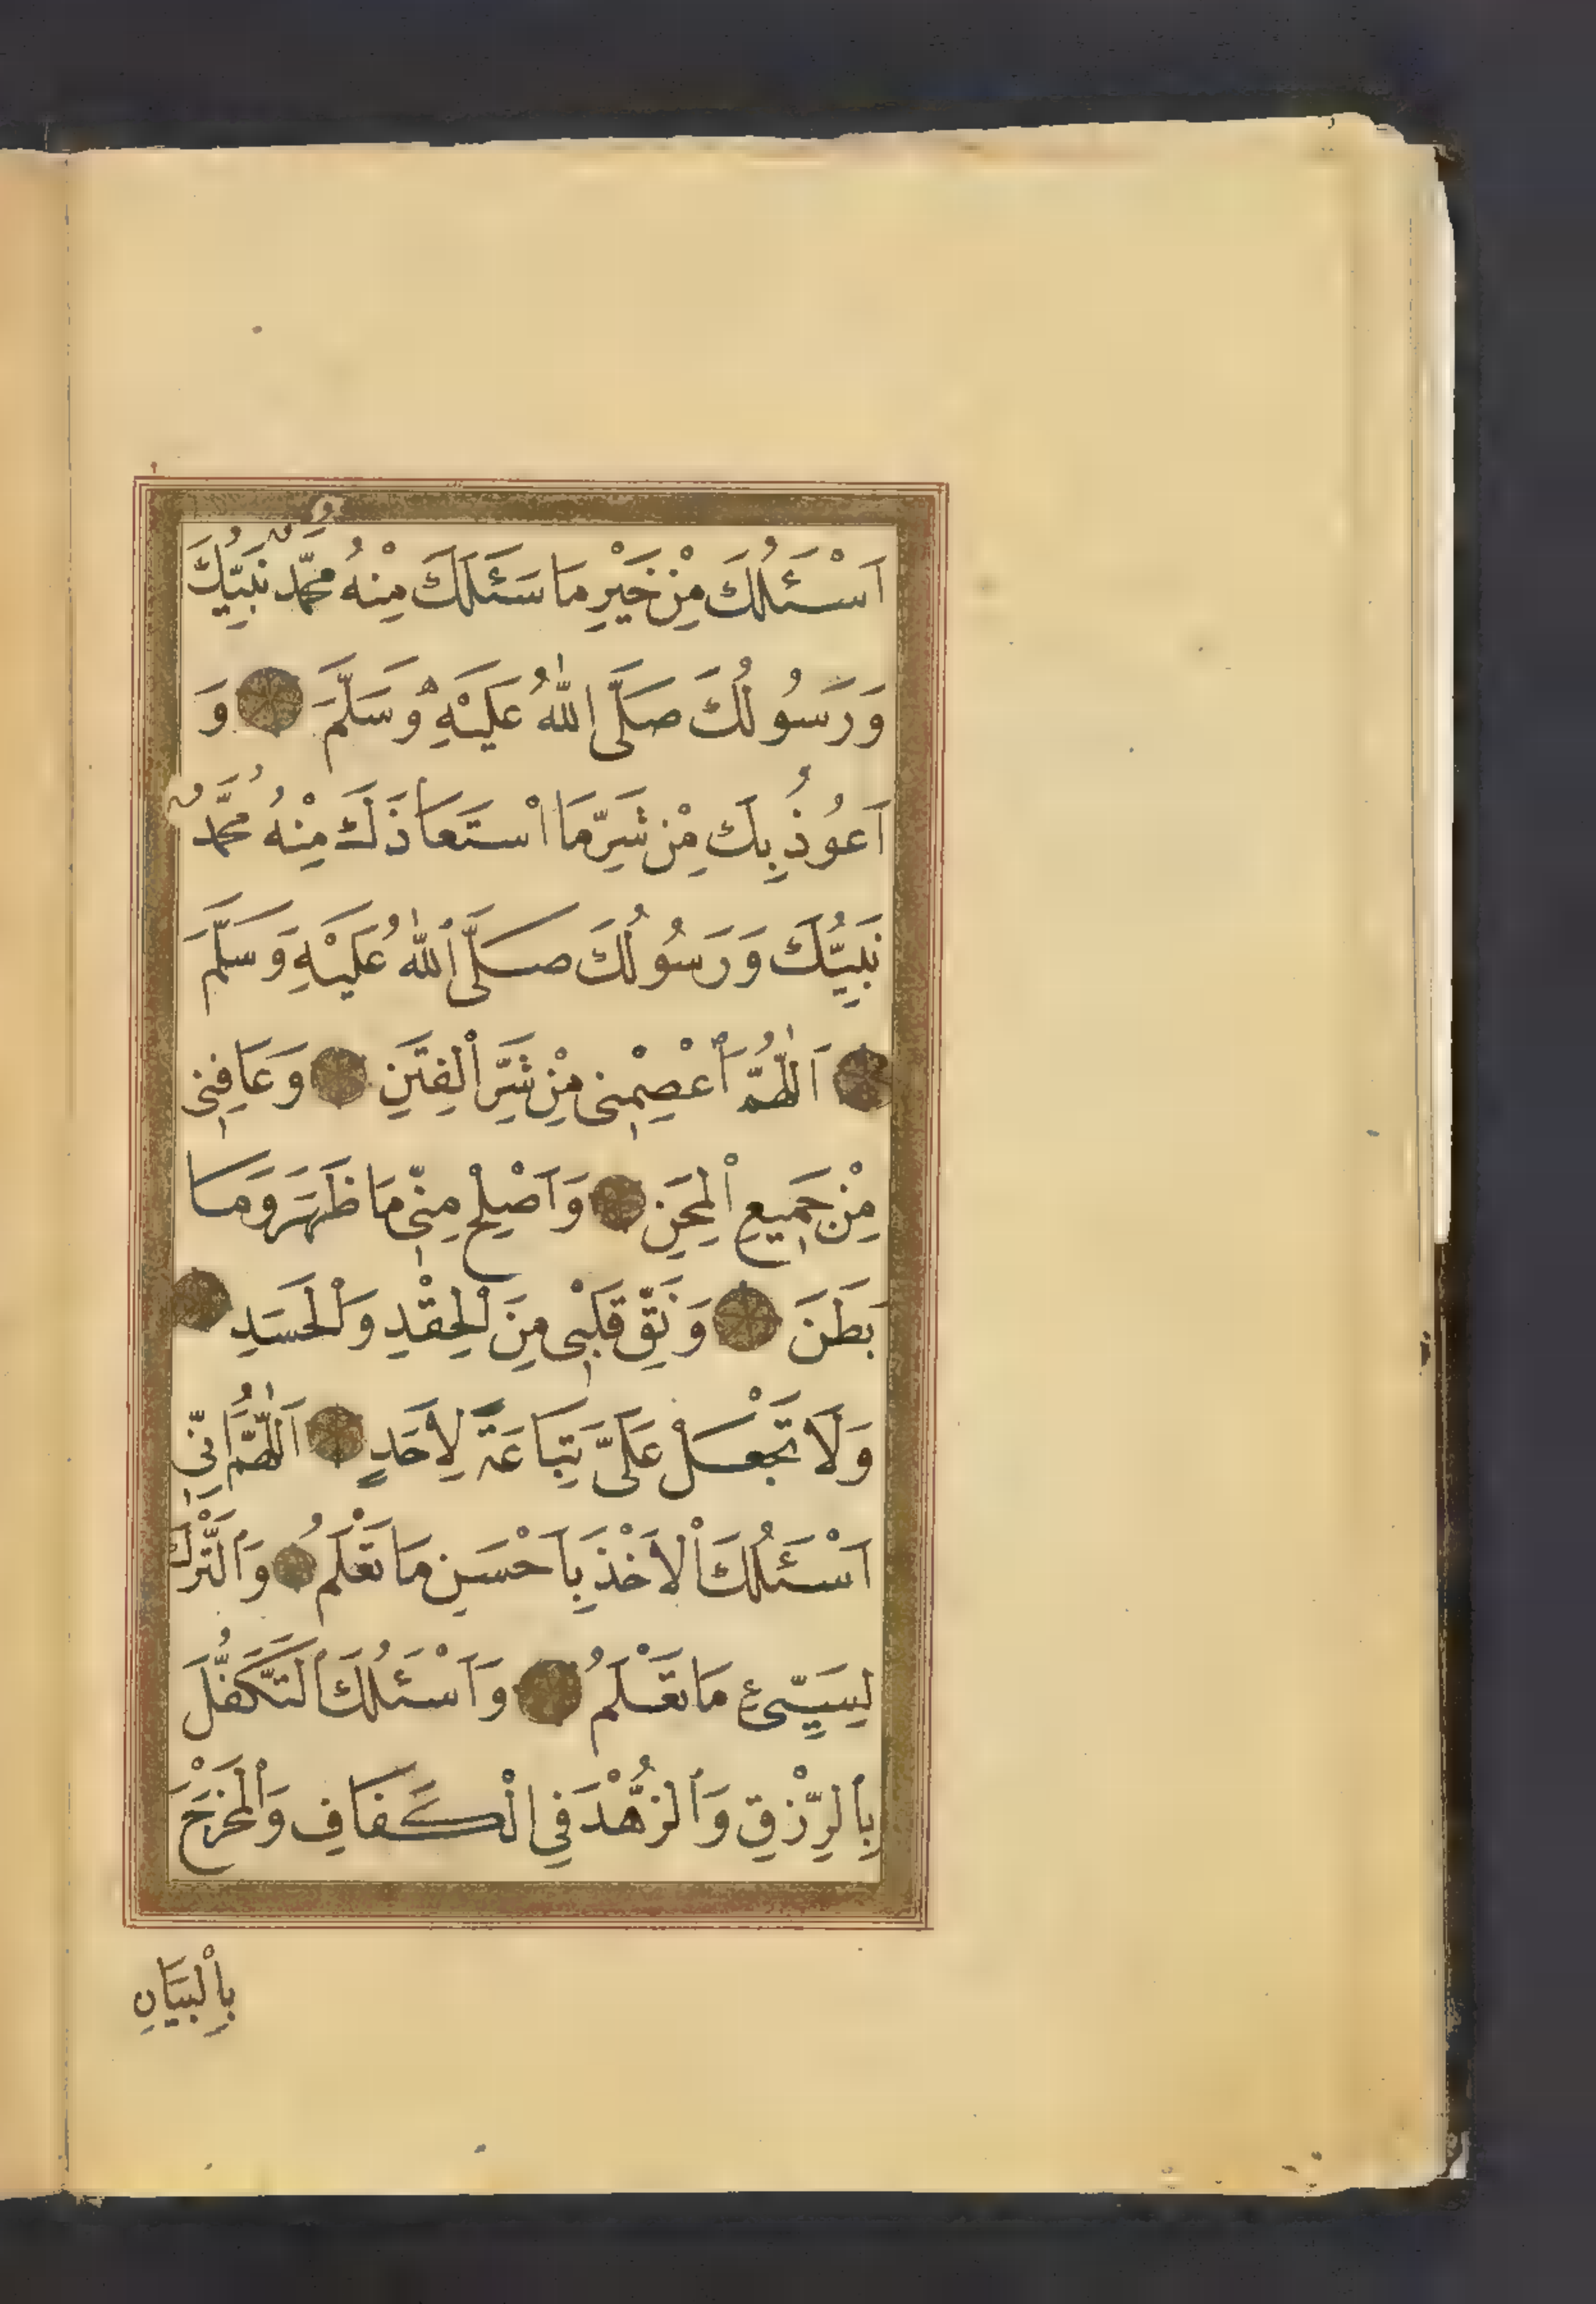 اَسْئَلُكَ مِنْ خَيْرِ مَا سَئَلَكَ مِنْهُ مُحَمَّدٌ نَبِيُّكَ
وَرَسُولُكَ صَلَّى اللّٰهُ عَلَيْهِ وَسَلَّمَ وَ
اَعُوذُ بِكَ مِنْ شَرِّ مَا اسْتَعَاذَكَ مِنْهُ مُحَمَّدٌ
نَبِيُّكَ وَرَسُولُكَ صَلَّى اللّٰهُ عَلَيْهِ وَسَلَّمَ
اَللّٰهُمَّ اعْصِمْنِى مِنْ شَرِّ الْفِتَنِ وَعَافِنِى
مِنْ جَمِيعِ الْمِحَنِ وَاَصْلِحْ مِنِّى مَا ظَهَرَ وَمَا
بَطَنَ وَنَقِّ قَلْبِى مِنَ الْحِقْدِ وَالْحَسَدِ
وَلَا تَجْعَلْ عَلَىَّ تِبَاعَةً لِاَحَدٍ اَللّٰهُمَّ اِنِّى
اَسْئَلُكَ الْاَخْذَ بِاَحْسَنِ مَا تَعْلَمُ وَالتَّرْكَ
لِسَيِّئِ مَا تَعْلَمُ وَاَسْئَلُكَ التَّكَفُّلَ
بِالرِّزْقِ وَالزُّهْدَ فِى الْكَفَافِ وَالْمَخْرَجَ
بِالْبَيَانِ